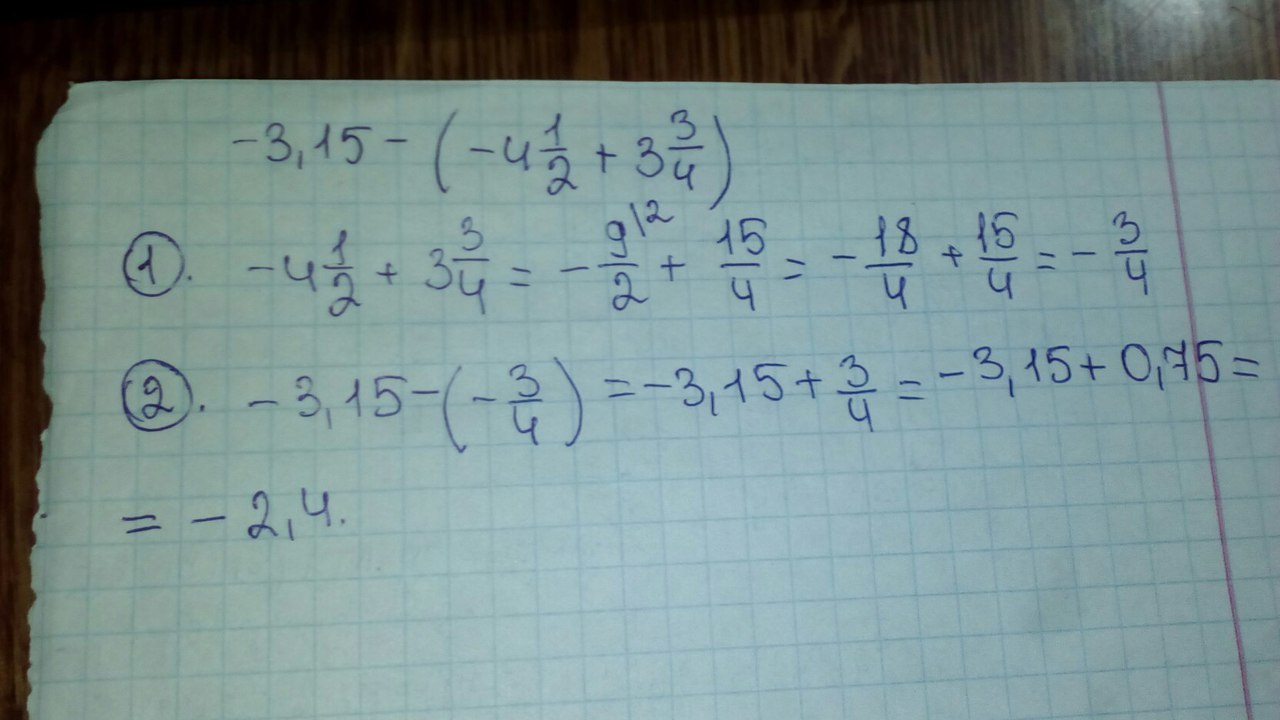 -3,15 - (-4 1/2 + 3 3/4)
①. -4 1/2 + 3 3/4 = - 9/2 \2 + 15/4 = - 18/4 + 15/4 = - 3/4
②. -3,15 - (- 3/4) = -3,15 + 3/4 = -3,15 + 0,75 =
= -2,4.